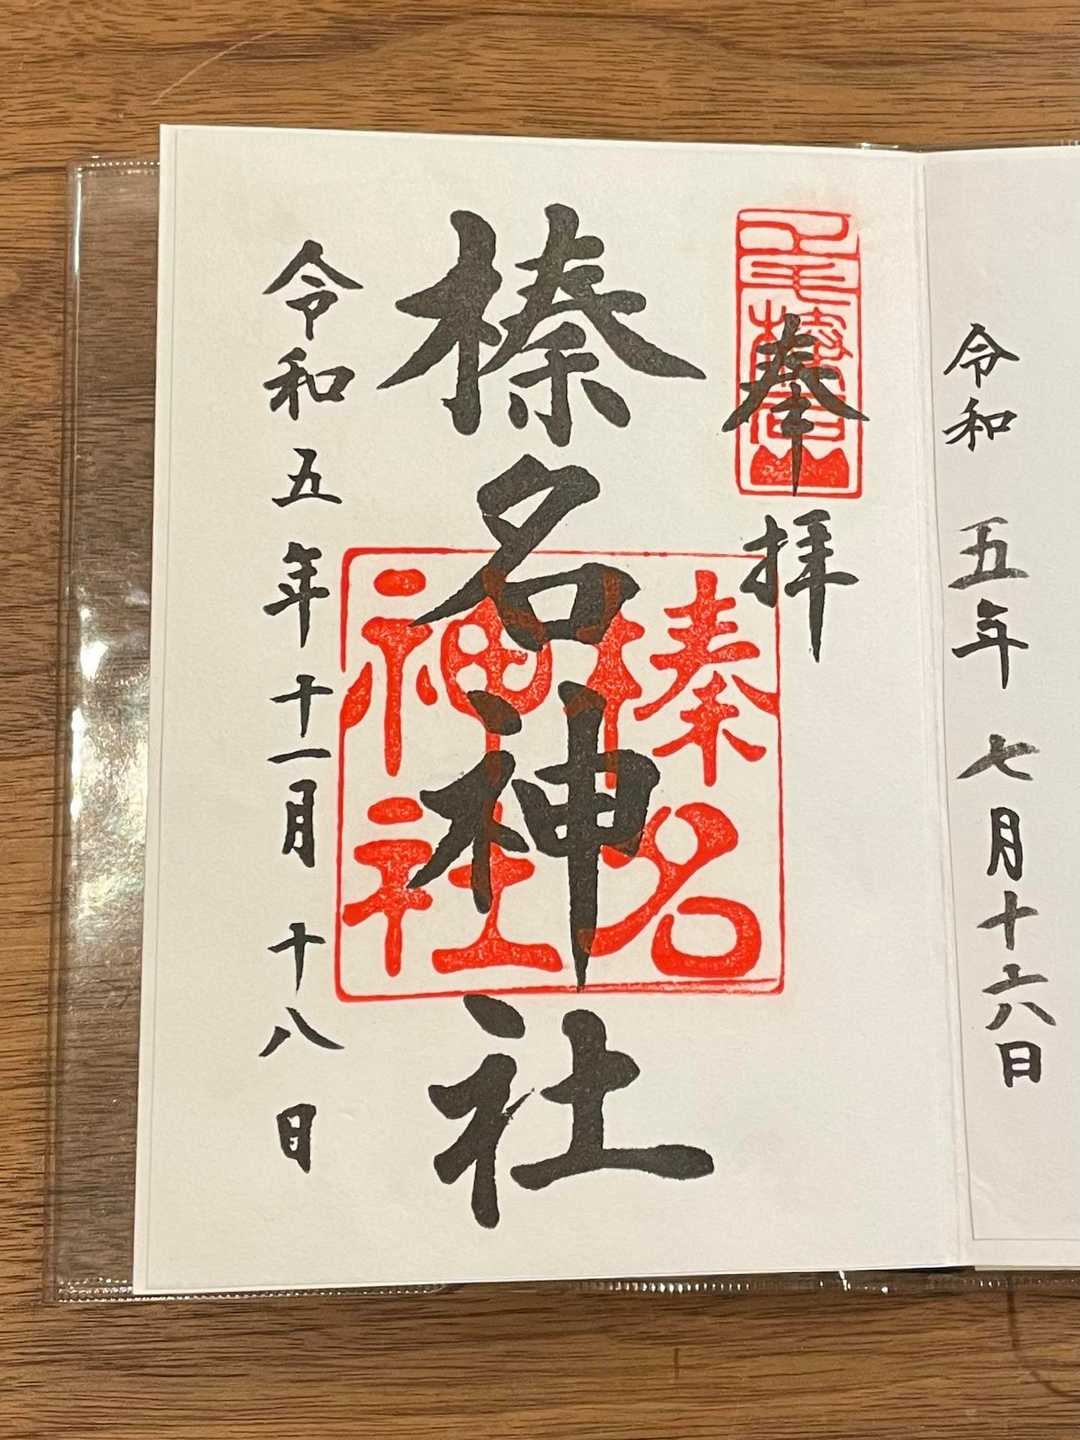 令和五年七月十六日
奉拝
上毛榛名山
榛名神社
榛名
神社
令和五年十一月十八日